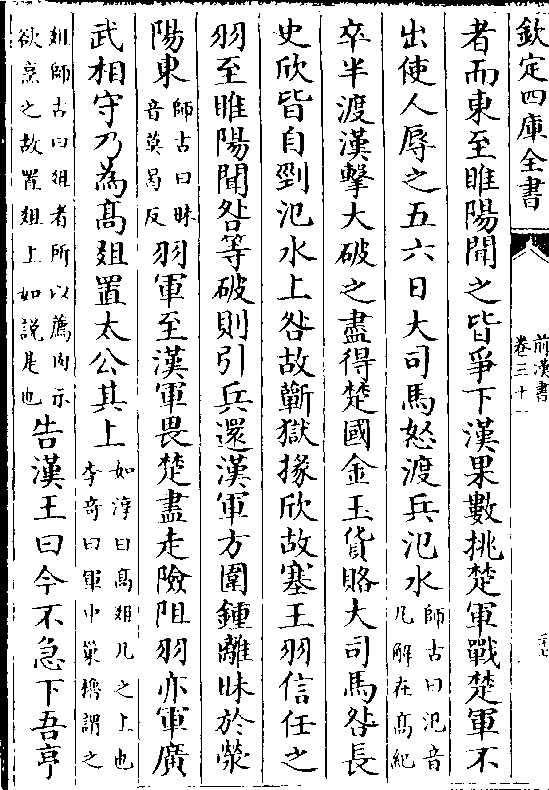 欽定四庫全書
前漢書
卷三十一
者而東至睢陽聞之皆爭下漢果數挑楚軍戰楚軍不
出使人辱之五六日大司馬怒渡兵汜水
師古曰汜音
凡解在髙紀
卒半渡漢擊大破之盡得楚國金玉貨賂大司馬咎長
史欣皆自剄汜水上咎故蘄獄掾欣故塞王羽信任之
羽至睢陽聞咎等破則引兵還漢軍方圍鍾離昧於滎
陽東
師古曰昧
音莫曷反
羽軍至漢軍畏楚盡走險阻羽亦軍廣
武相守乃為髙俎置太公其上
如淳曰髙俎几之上也
李竒曰軍中巢櫓謂之
俎師古曰俎者所以薦肉示
欲烹之故置俎上如説是也
告漢王曰今不急下吾亨